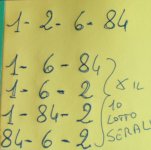 1-2-6-84
1-6-84
1-6-2
1-84-2
84-6-2
X IL
10
LOTTO
SERALE